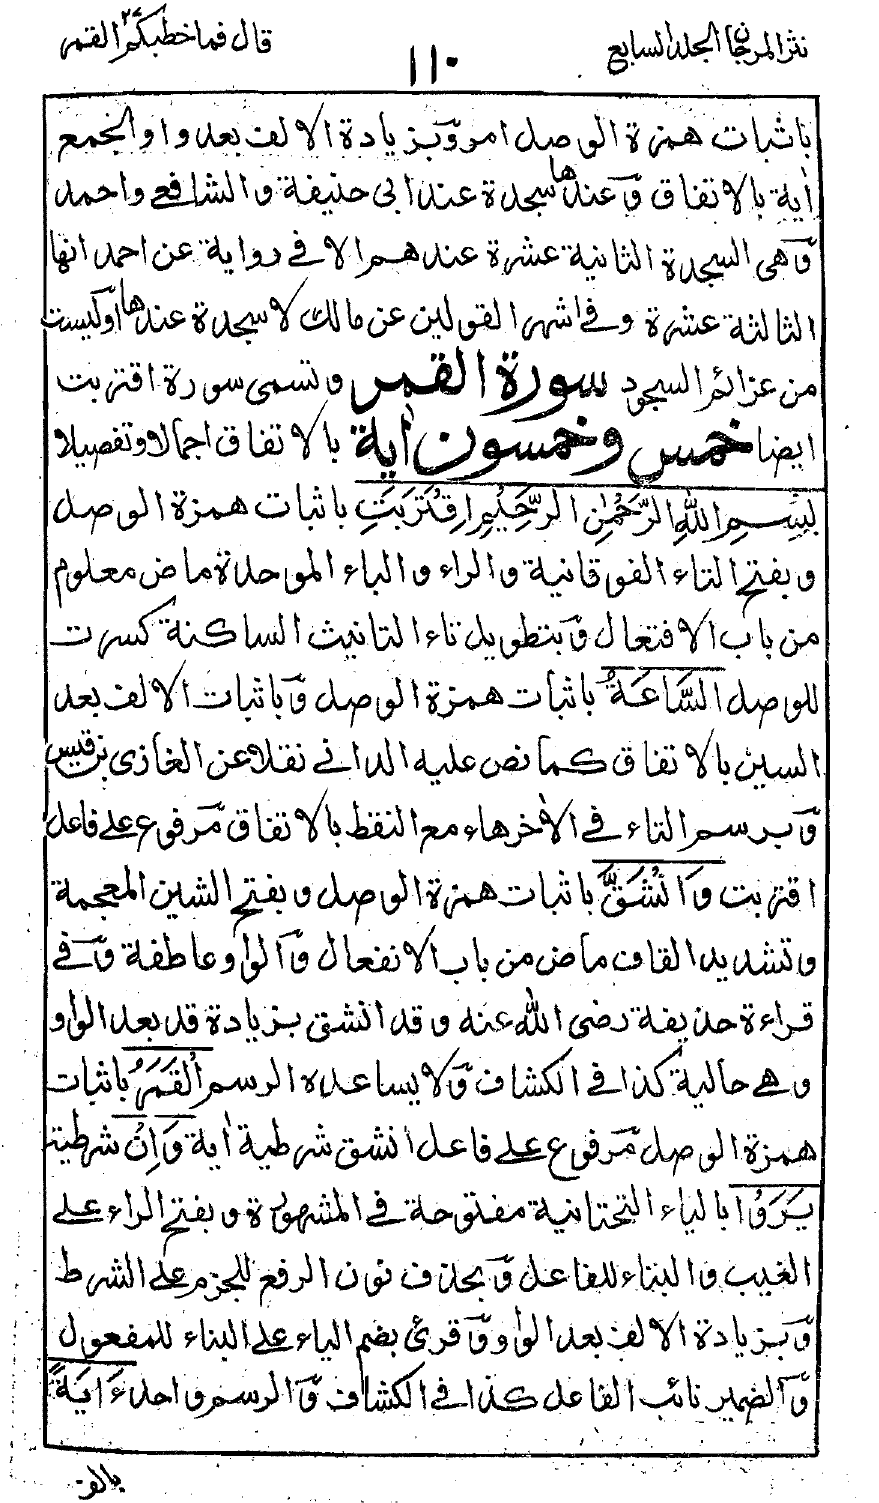 نثر المرجان الجلد السابع
١١٠
قال فما خطبكم ٢٧ القمر
باثبات همزة الوصل امر وّبزيادة الالف بعد واو الجمع
اٰية بالاتفاق وّعندها سجدة عند ابى حنيفة والشافعے واحمد
وّهى السجدة الثانية عشرة عندهم الا فے رواية عن احمد انها
الثالثة عشرة وفے اشهر القولين عن مالك لا سجدة عندها اوّليست
من عزائم السجود سورة القمر وتسمى سورة اقتربت
ايضا خمس وخمسون اٰية بالاتفاق اجمالا وتفصيلا
بِسْمِ اللّٰهِ الرَّحْمٰنِ الرَّحِيْمِ اِقْتَرَبَتِ باثبات همزة الوصل
وبفتح التاء الفوقانية والراء والباء الموحدة ماض معلوم
من باب الافتعال وّبتطويل تاء التانيث الساكنة كسرت
للوصل السَّاعَةُ باثبات همزة الوصل وّباثبات الالف بعد
السين بالاتفاق كما نص عليه الدانے نقلا عن الغازى بن قيس
وّبرسم التاء فے الاٰخرهاء مع النقط بالاتفاق مّرفوع علے فاعل
اقتربت وَانْشَقَّ باثبات همزة الوصل وبفتح الشين المعجمة
وتشديد القاف ماض من باب الانفعال وّالواو عاطفة وّفے
قراءة حذيفة رضى الله عنه وقد انشق بزيادة قد بعد الواو
وهے حالية كذا فے الكشاف وّلا يساعده الرسم الْقَمَرُ باثبات
همزة الوصل مّرفوع علے فاعل انشق شرطية اٰية وَاِنْ شرطية
يَرَوْا بالياء التحتانية مفتوحة فے المشهورة وبفتح الراء علے
الغيب والبناء للفاعل وّبحذف نون الرفع للجزم علے الشرط
وّبزيادة الالف بعد الواو وّقرئ بضم الياء علے البناء للمفعول
وّالضمير نائب الفاعل كذا فے الكشاف وّالرسم واحد ءَايَةً
بالف